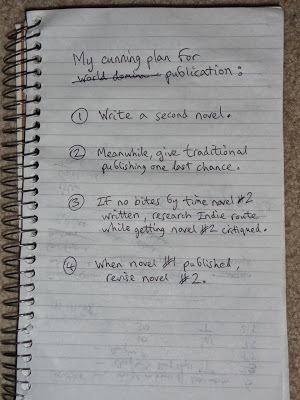 My cunning plan for
world domin publication:
① Write a second novel.
② Meanwhile, give traditional
publishing one last chance.
③ If no bites by time novel #2
written, research Indie route
while getting novel #2 critiqued.
④ When novel #1 published,
revise novel #2.